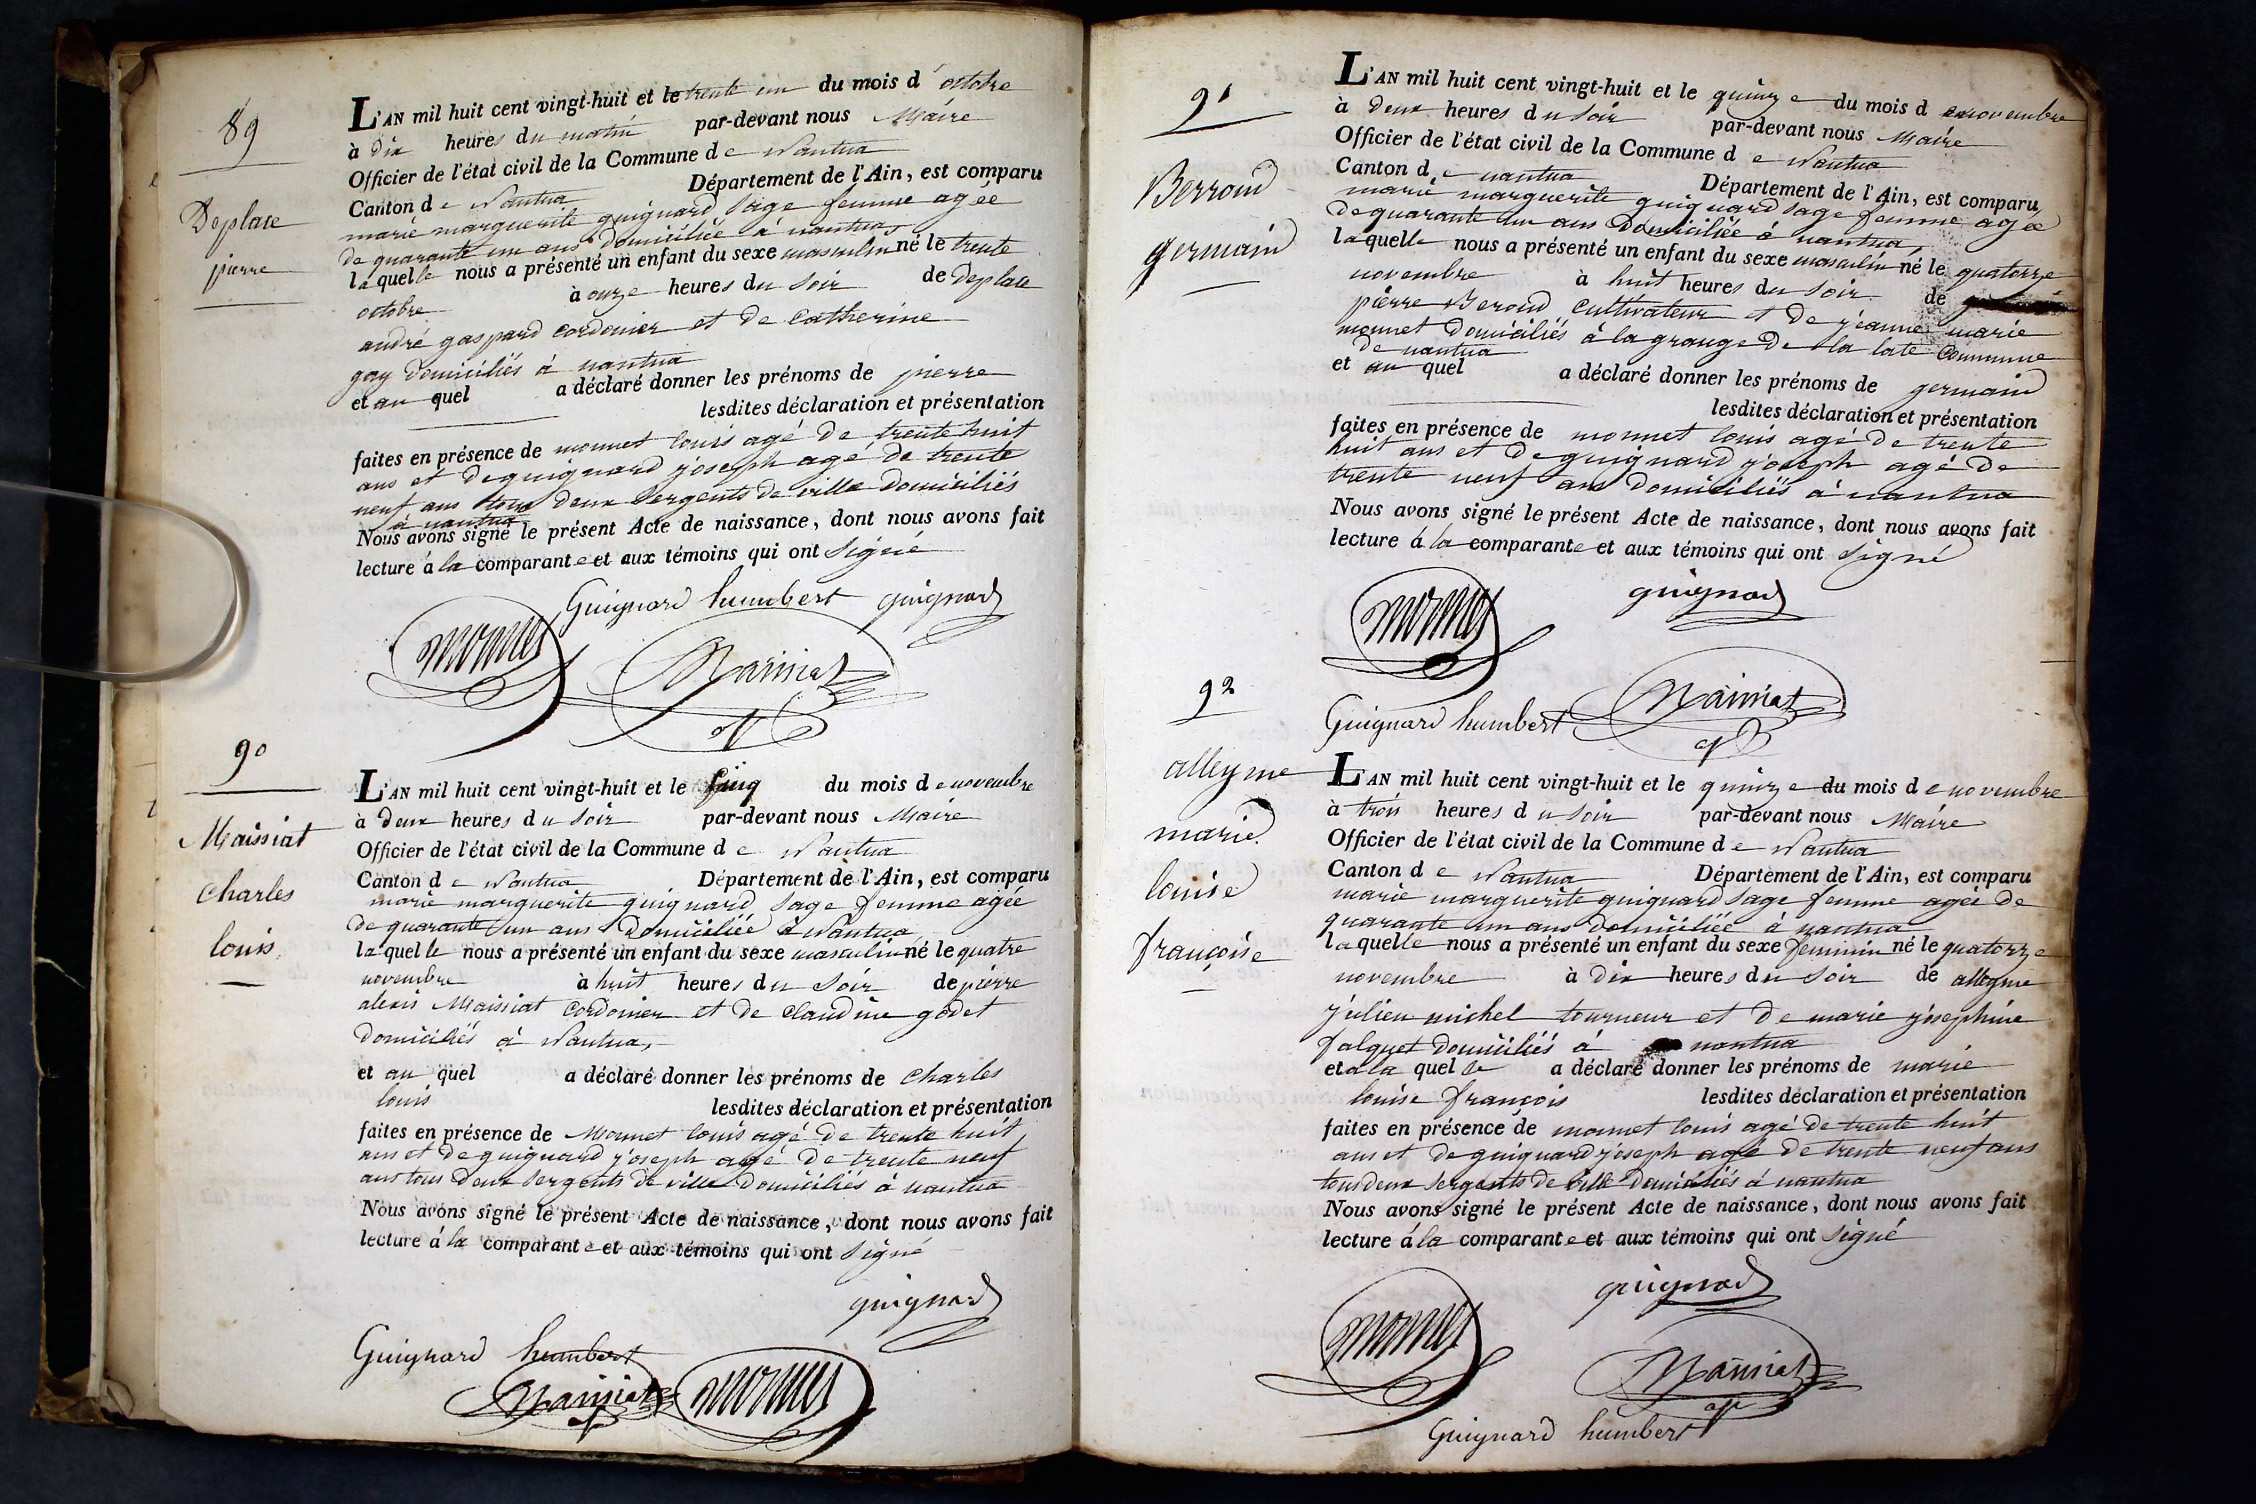 89
Deplace
pierre
L'AN mil huit cent vingt-huit et le trente un du mois d'octobre
à dix heures du matin par-devant nous Maire
Officier de l'état civil de la Commune de Nantua
Canton de Nantua Département de l'Ain, est comparu
marie marguerite guignard sage femme agée
de quarante un ans domiciliée à nantua
laquelle nous a présenté un enfant du sexe masculin né le trente
octobre à onze heures du soir de Deplace
andré gaspard cordonier et de Catherine
gay domiciliés à nantua
et au quel a déclaré donner les prénoms de pierre
lesdites déclaration et présentation
faites en présence de monnet louis agé de trente huit
ans et de guignard joseph agé de trente
neuf ans tous deux sergents de ville domiciliés
à nantua
Nous avons signé le présent Acte de naissance, dont nous avons fait
lecture à la comparante et aux témoins qui ont signé
Guignard humbert guignard
monnet Maissiat
90
Maissiat
Charles
louis
L'AN mil huit cent vingt-huit et le cinq du mois de novembre
à deux heures du soir par-devant nous Maire
Officier de l'état civil de la Commune de Nantua
Canton de Nantua Département de l'Ain, est comparu
marie marguerite guignard sage femme agée
de quarante un ans domiciliée à Nantua
laquelle nous a présenté un enfant du sexe masculin né le quatre
novembre à huit heures du soir de pierre
alexis Maissiat cordonier et de Claudine godet
domiciliés à Nantua,
et au quel a déclaré donner les prénoms de Charles
louis lesdites déclaration et présentation
faites en présence de Monnet louis agé de trente huit
ans et de guignard joseph agé de trente neuf
ans tous deux sergents de ville domiciliés à nantua
Nous avons signé le présent Acte de naissance, dont nous avons fait
lecture á la comparante et aux témoins qui ont signé
guignard
Guignard humbert
Maissiat monnet
91
Berroud
germain
L'AN mil huit cent vingt-huit et le quinze du mois de novembre
à deux heures du soir par-devant nous Maire
Officier de l'état civil de la Commune de Nantua
Canton de nantua Département de l'Ain, est comparu
marie marguerite guignard sage femme agée
de quarante un ans domiciliée à nantua,
laquelle nous a présenté un enfant du sexe masculin né le quatorze
novembre à huit heures du soir de
pierre Beroud cultivateur et de jeanne marie
monnet domiciliés à la grange de la late Commune
de nantua
et au quel a déclaré donner les prénoms de germain
lesdites déclaration et présentation
faites en présence de monnet louis agé de trente
huit ans et de guignard joseph agé de
trente neuf ans domiciliés à nantua
Nous avons signé le présent Acte de naissance, dont nous avons fait
lecture á la comparante et aux témoins qui ont signé
monnet guignard
Guignard humbert Maissiat
92
alleyme
marie
louise
françoise
L'AN mil huit cent vingt-huit et le quinze du mois de novembre
à trois heures du soir par-devant nous Maire
Officier de l'état civil de la Commune de Nantua
Canton de Nantua Département de l'Ain, est comparu
marie marguerite guignard sage femme agée de
quarante un ans domiciliée à nantua
laquelle nous a présenté un enfant du sexe feminin né le quatorze
novembre à dix heures du soir de alleyme
julien michel tourneur et de marie josephine
falquet domiciliés à nantua
et a la quelle a déclaré donner les prénoms de marie
louise françois lesdites déclaration et présentation
faites en présence de monnet louis agé de trente huit
ans et de guignard joseph agé de trente neuf ans
tous deux sergents de ville domiciliés à nantua
Nous avons signé le présent Acte de naissance, dont nous avons fait
lecture á la comparante et aux témoins qui ont signé
guignard
monnet Maissiat
Guignard humbert